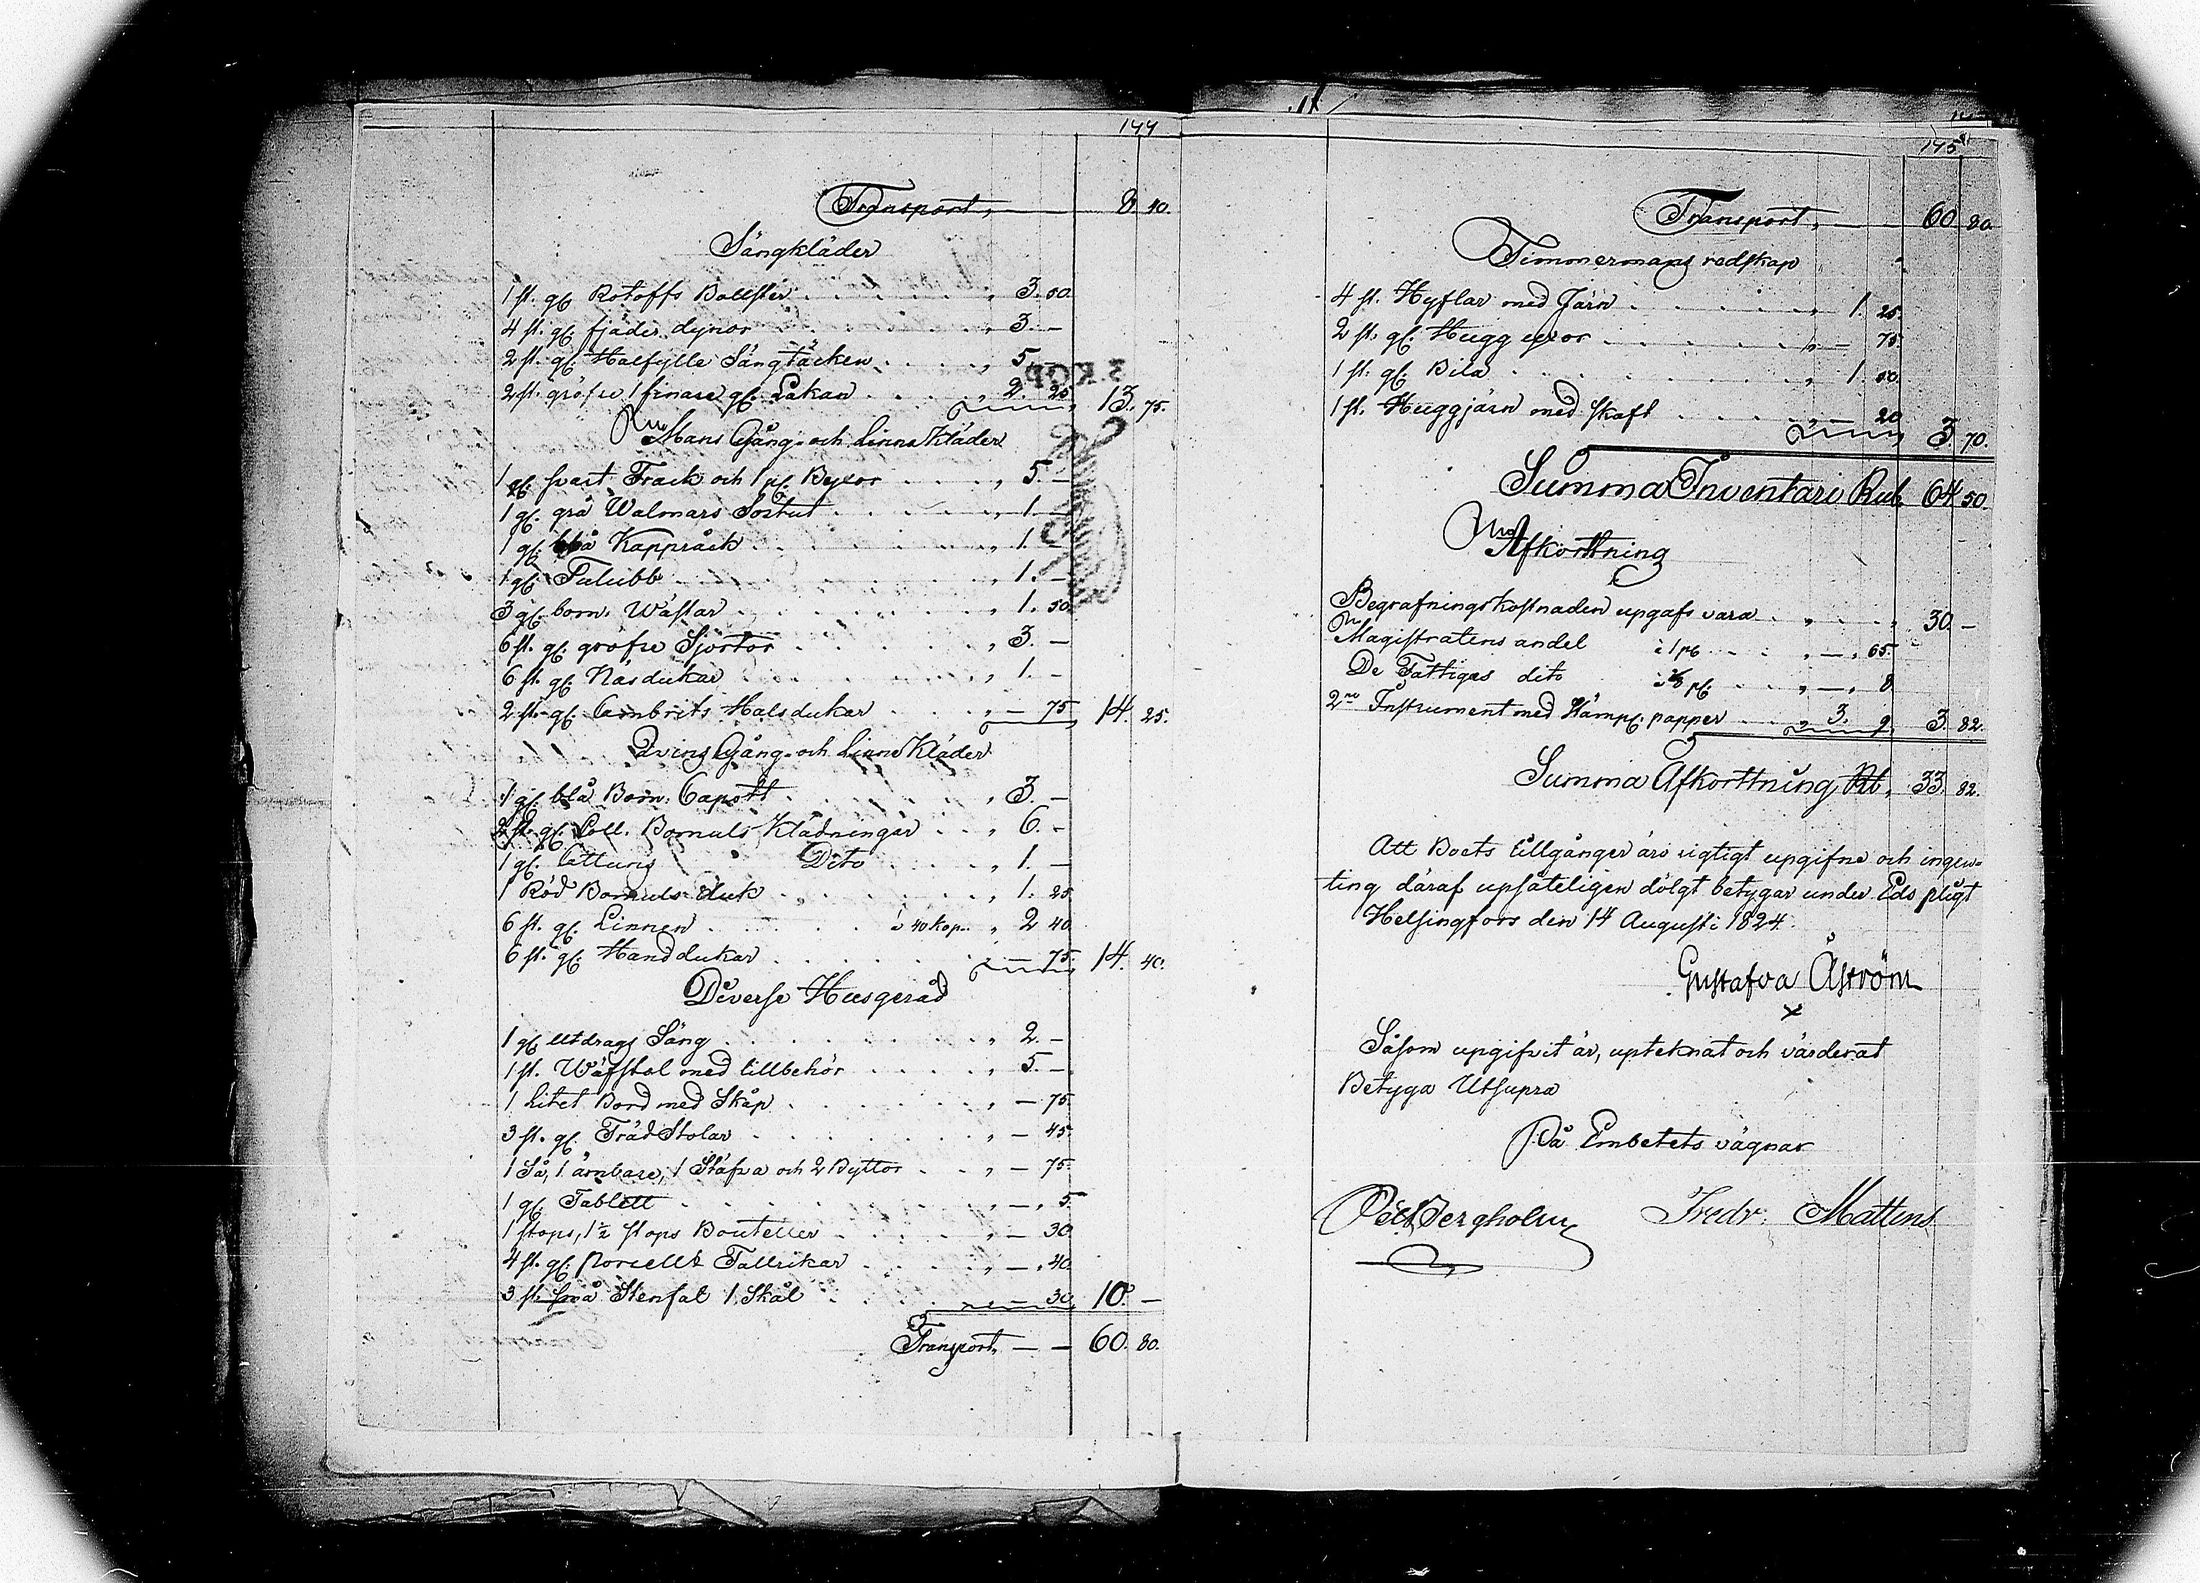 144
Transport, 8 40.
Sängkläder
1 st. gl. Rotoffs Bollster . . . . 3. 50.
4 st. gl. fjäder dynor . . . . 3. —
2 st. gl. Halfylle Sängtäcken . . . . 5. —
2 st. gröfre 1 finare gl. Lakan . . . 2. 25. 13. 75.
Mans Gång- och Linne Kläder
1 gl. svart Frack och 1 pl. Byxor . . . . 5. —
1 gl. grå Walmars Sortut . . . . 1. —
1 gl. blå Kappråck . . . . 1. —
1 gl. Tulubb . . . . 1. —
3 gl. bom. Wästar . . . . 1. 50.
6 st. gl. gröfre Sjortor . . . . 3. —
6 st. gl. Näsdukar . . . . 1. —
2 st. gl. Cambrits Halsdukar . . . . — 75. 14. 25.
Qvins Gång- och Linne Kläder
1 gl. blå Bom. Capott . . . . 3. —
2 st. gl. Coll. Bomuls Klädningar . . . 6. —
1 gl. Dito . . . . 1. —
1 Röd Bomuls duk . . . . 1. 25.
6 st. gl. Linnen . . . . à 40 kop. . . 2 40.
6 st. gl. Handdukar . . . . — 75. 14. 40.
Diverse Husgeråd
1 gl. Utdrags Säng . . . . 2. —
1 st. Wäfstol med tillbehör . . . . 5. —
1 Litet Bord med Skåp . . . . — 75.
3 st. gl. Träd Stolar . . . . — 45.
1 Så, 1 ämbare, 1 Stäfva och 2 Byttor . . — 75.
1 gl. Tablett . . . . — 5.
1 stops, 1 ½ stops Bouteller . . . . — 30
4 st. gl. Porcellt Tallrikar . . . . — 40.
3 st. små Stenfat 1 Skål . . . . — 30. 10. —
Transport, — — 60. 80.
5 KOP
145
Transport, 60. 80.
Timmermans redskap
4 st. Hyflar med Järn . . . . 1. 25.
2 st. gl. Hugg yxor . . . . — 75.
1 st. gl. Bila . . . . 1. 50.
1 st. Huggjärn med skaft . . . . — 20 3. 70.
Summa Inventari Rub. 64. 50.
Afkorttning
Begrafningskostnaden upgafs vara . . . 30. —
Magistratens andel à 1 pc . . . — 65.
De Fattigas dito . . . — 8
2ne Instrument med Kämpl. papper . . 3. 9. 3. 82.
Summa Afkorttning Rb. 33. 82.
Att Boets tillgånger äro rigtigt upgifne och ingen-
ting däraf upsåteligen dölgt betygar under Eds pligt
Helsingfors den 14 Augusti 1824.
Gustafva Åström
x
Såsom upgifvit är, upteknat och värderat
Betyga Utsupra
På Embetets vägnar
Bergholm Fredr. Mattens